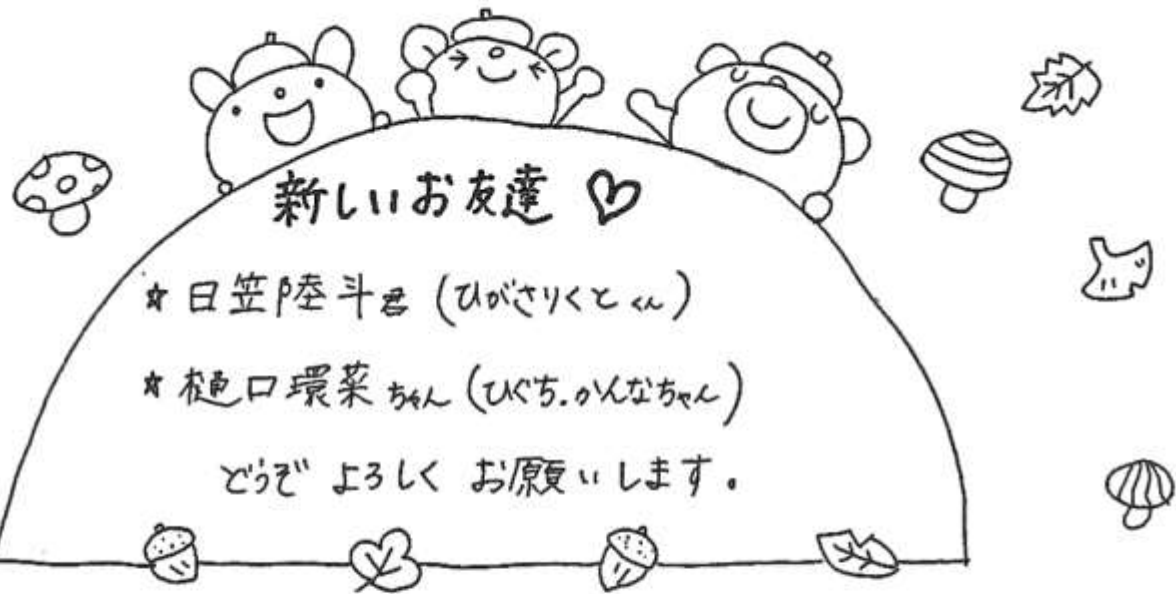 新しいお友達 ♡
☆ 日笠陸斗君 (ひがさりくとくん)
☆ 樋口環菜ちゃん (ひぐち.かんなちゃん)
どうぞ よろしく お願いします。